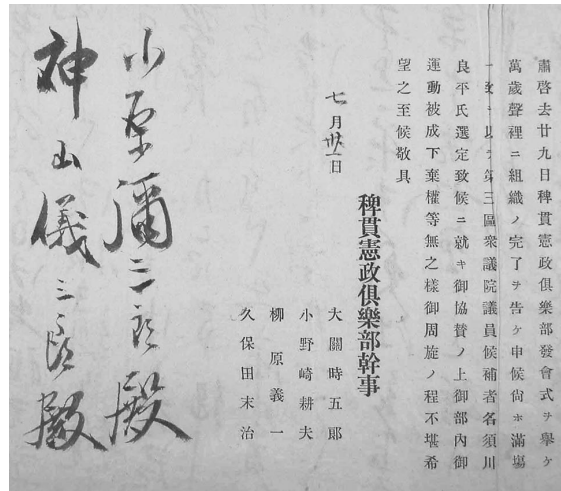 肅啓去廿九日稗貫憲政俱樂部發會式ヲ擧ケ
萬歲聲裡ニ組織ノ完了ヲ告ケ申候尙ホ滿塲
一致ヲ以テ第三區衆議院議員候補者名須川
良平氏選定致候ニ就キ御協贊ノ上御部內御
運動被成下棄權等無之樣御周旋ノ程不堪希
望之至候敬具
七月卅一日
稗貫憲政俱樂部幹事
大關時五郞
小野崎耕夫
柳原義一
久保田末治
小原彌三郎殿
神山儀三郎殿